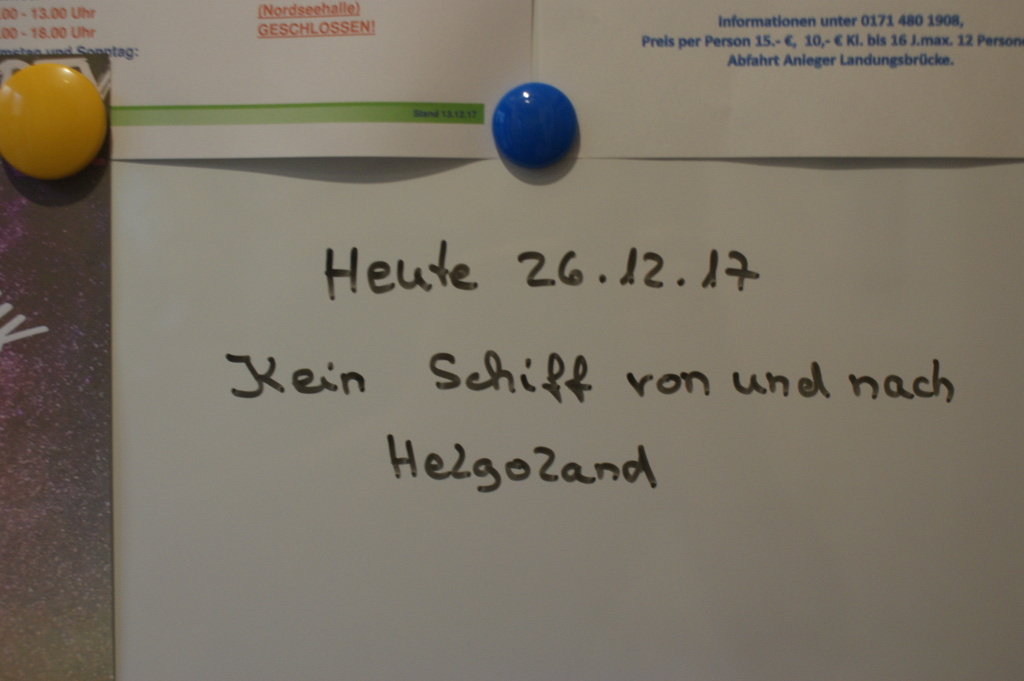 .00 - 13.00 Uhr
.00 - 18.00 Uhr
mstag und Sonntag:
(Nordseehalle)
GESCHLOSSEN!
Stand 13.12.17
Informationen unter 0171 480 1908,
Preis per Person 15.- €, 10,- € Ki. bis 16 J.max. 12 Persone
Abfahrt Anleger Landungsbrücke.
Heute 26.12.17
Kein Schiff von und nach
Helgoland